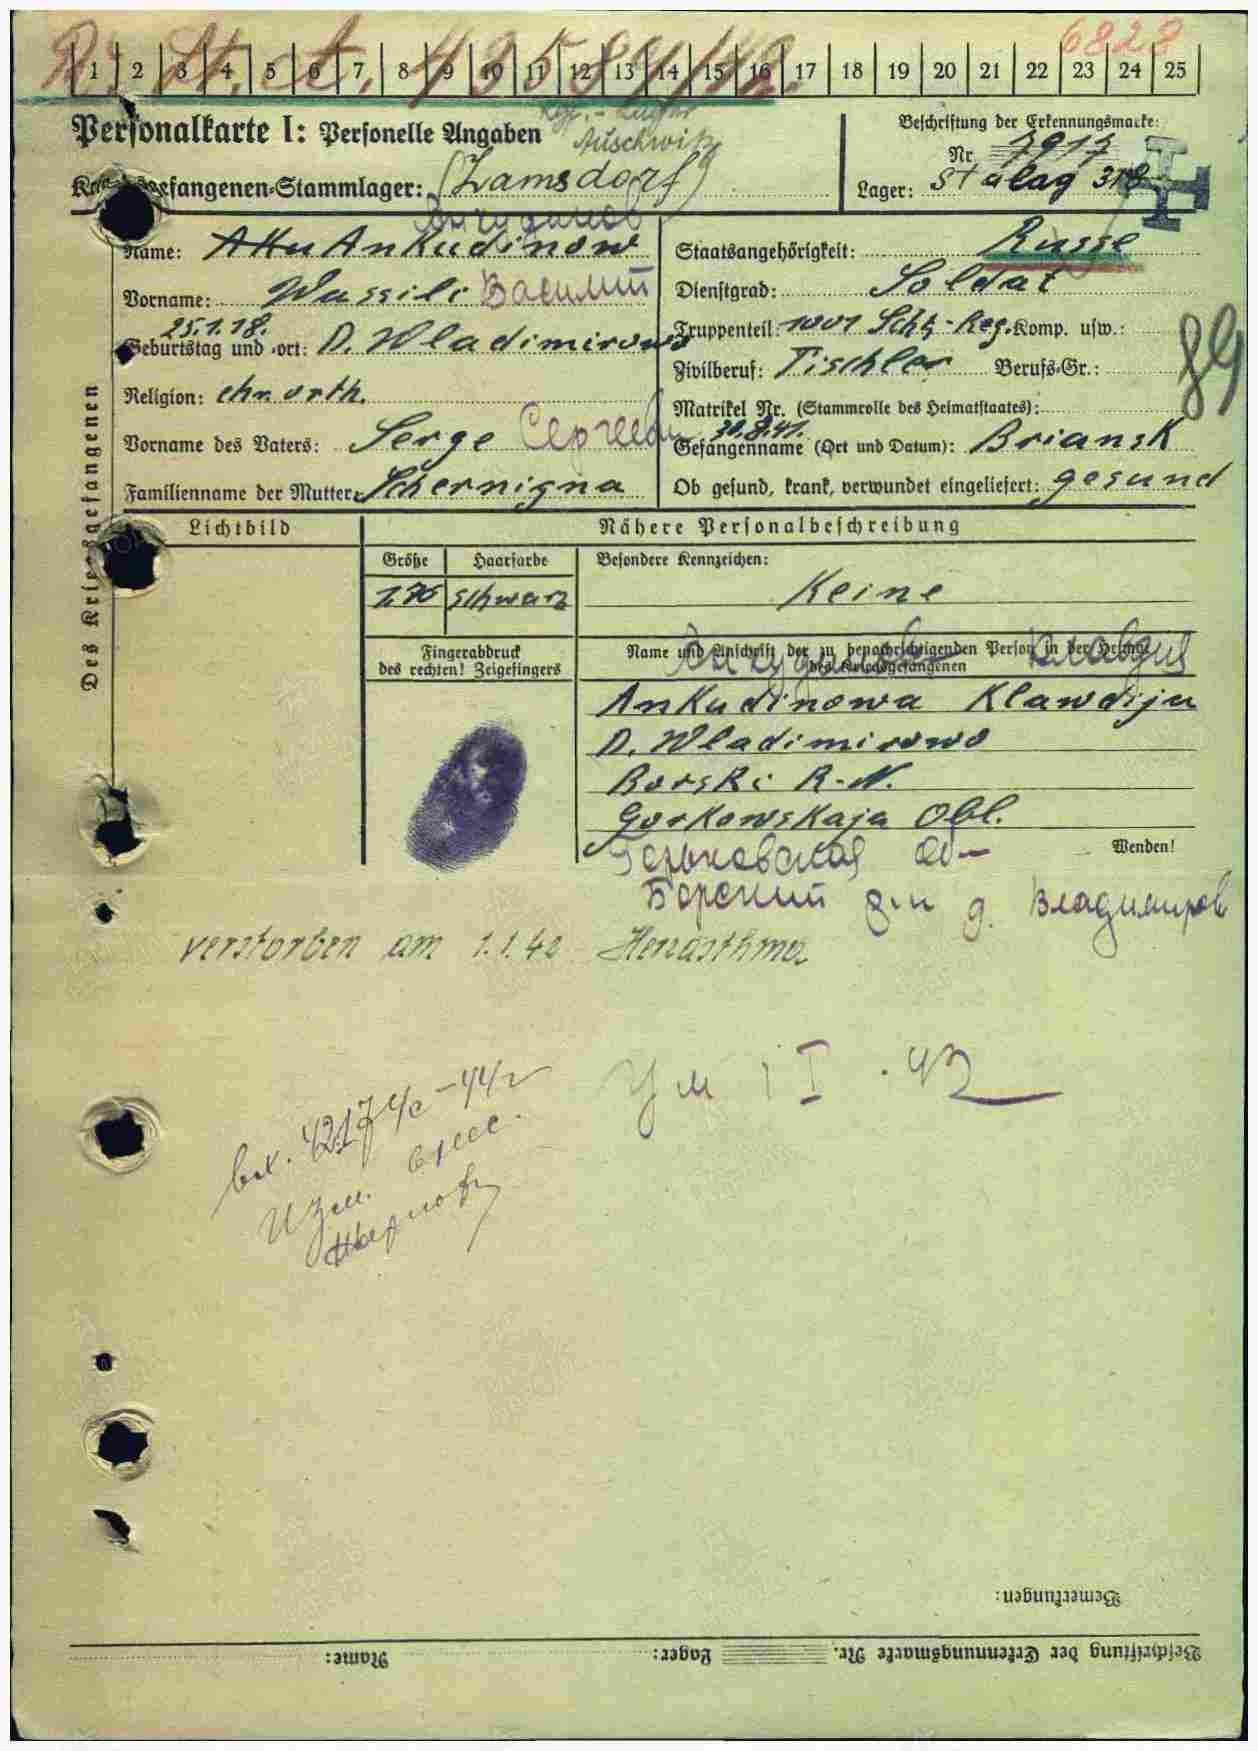 R. St. ct. 4358/142. 6828
1 2 3 4 5 6 7 8 9 10 11 12 13 14 15 16 17 18 19 20 21 22 23 24 25
Personalkarte I: Personelle Angaben
Auschwitz
Kriegsgefangenen-Stammlager: (Lamsdorf)
Beschriftung der Erkennungsmarke:
Nr. 7913
Lager: Stalag 318
Des Kriegsgefangenen
Анкудинов
Name: Ankudinow
Vorname: Wassili Василий
25.1.18.
Geburtstag und -ort: D. Wladimirowo
Religion: chr. orth.
Vorname des Vaters: Serge Сергеев
Familienname der Mutter: Schernigna
Staatsangehörigkeit: Russe
Dienstgrad: Soldat
Truppenteil: 1001 Schtz-Reg. Komp. usw.:
Zivilberuf: Tischler Berufs-Gr.:
89
Matrikel Nr. (Stammrolle des Heimatstaates):
30.8.41.
Gefangennahme (Ort und Datum): Briansk
Ob gesund, krank, verwundet eingeliefert: gesund
Lichtbild
Nähere Personalbeschreibung
Größe Haarfarbe Besondere Kennzeichen:
1.70 schwarz Keine
Fingerabdruck
des rechten! Zeigefingers
Name und Anschrift der zu benachrichtigenden Person in der Heimat
des Kriegsgefangenen
Клавдия
Ankudinowa Klawdija
D. Wladimirowo
Borski R-N.
Gorkowskaja Obl.
Wenden!
Горьковская об-
Борский р-н д. Владимиров
verstorben am 1.1.42 Herzasthma
Ум 1 I. 42
вх. 4217 4с-44г
Изм. внес.
Bemerkungen:
Beschriftung der Erkennungsmarke Nr. Lager: Name: